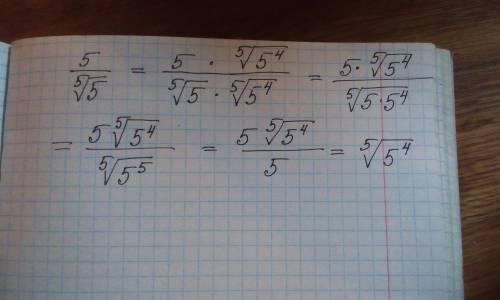 5/⁵√5 = (5 · ⁵√5⁴)/(⁵√5 · ⁵√5⁴) = (5 · ⁵√5⁴)/(⁵√5·5⁴)
= (5 ⁵√5⁴)/(⁵√5⁵) = (5 ⁵√5⁴)/5 = ⁵√5⁴